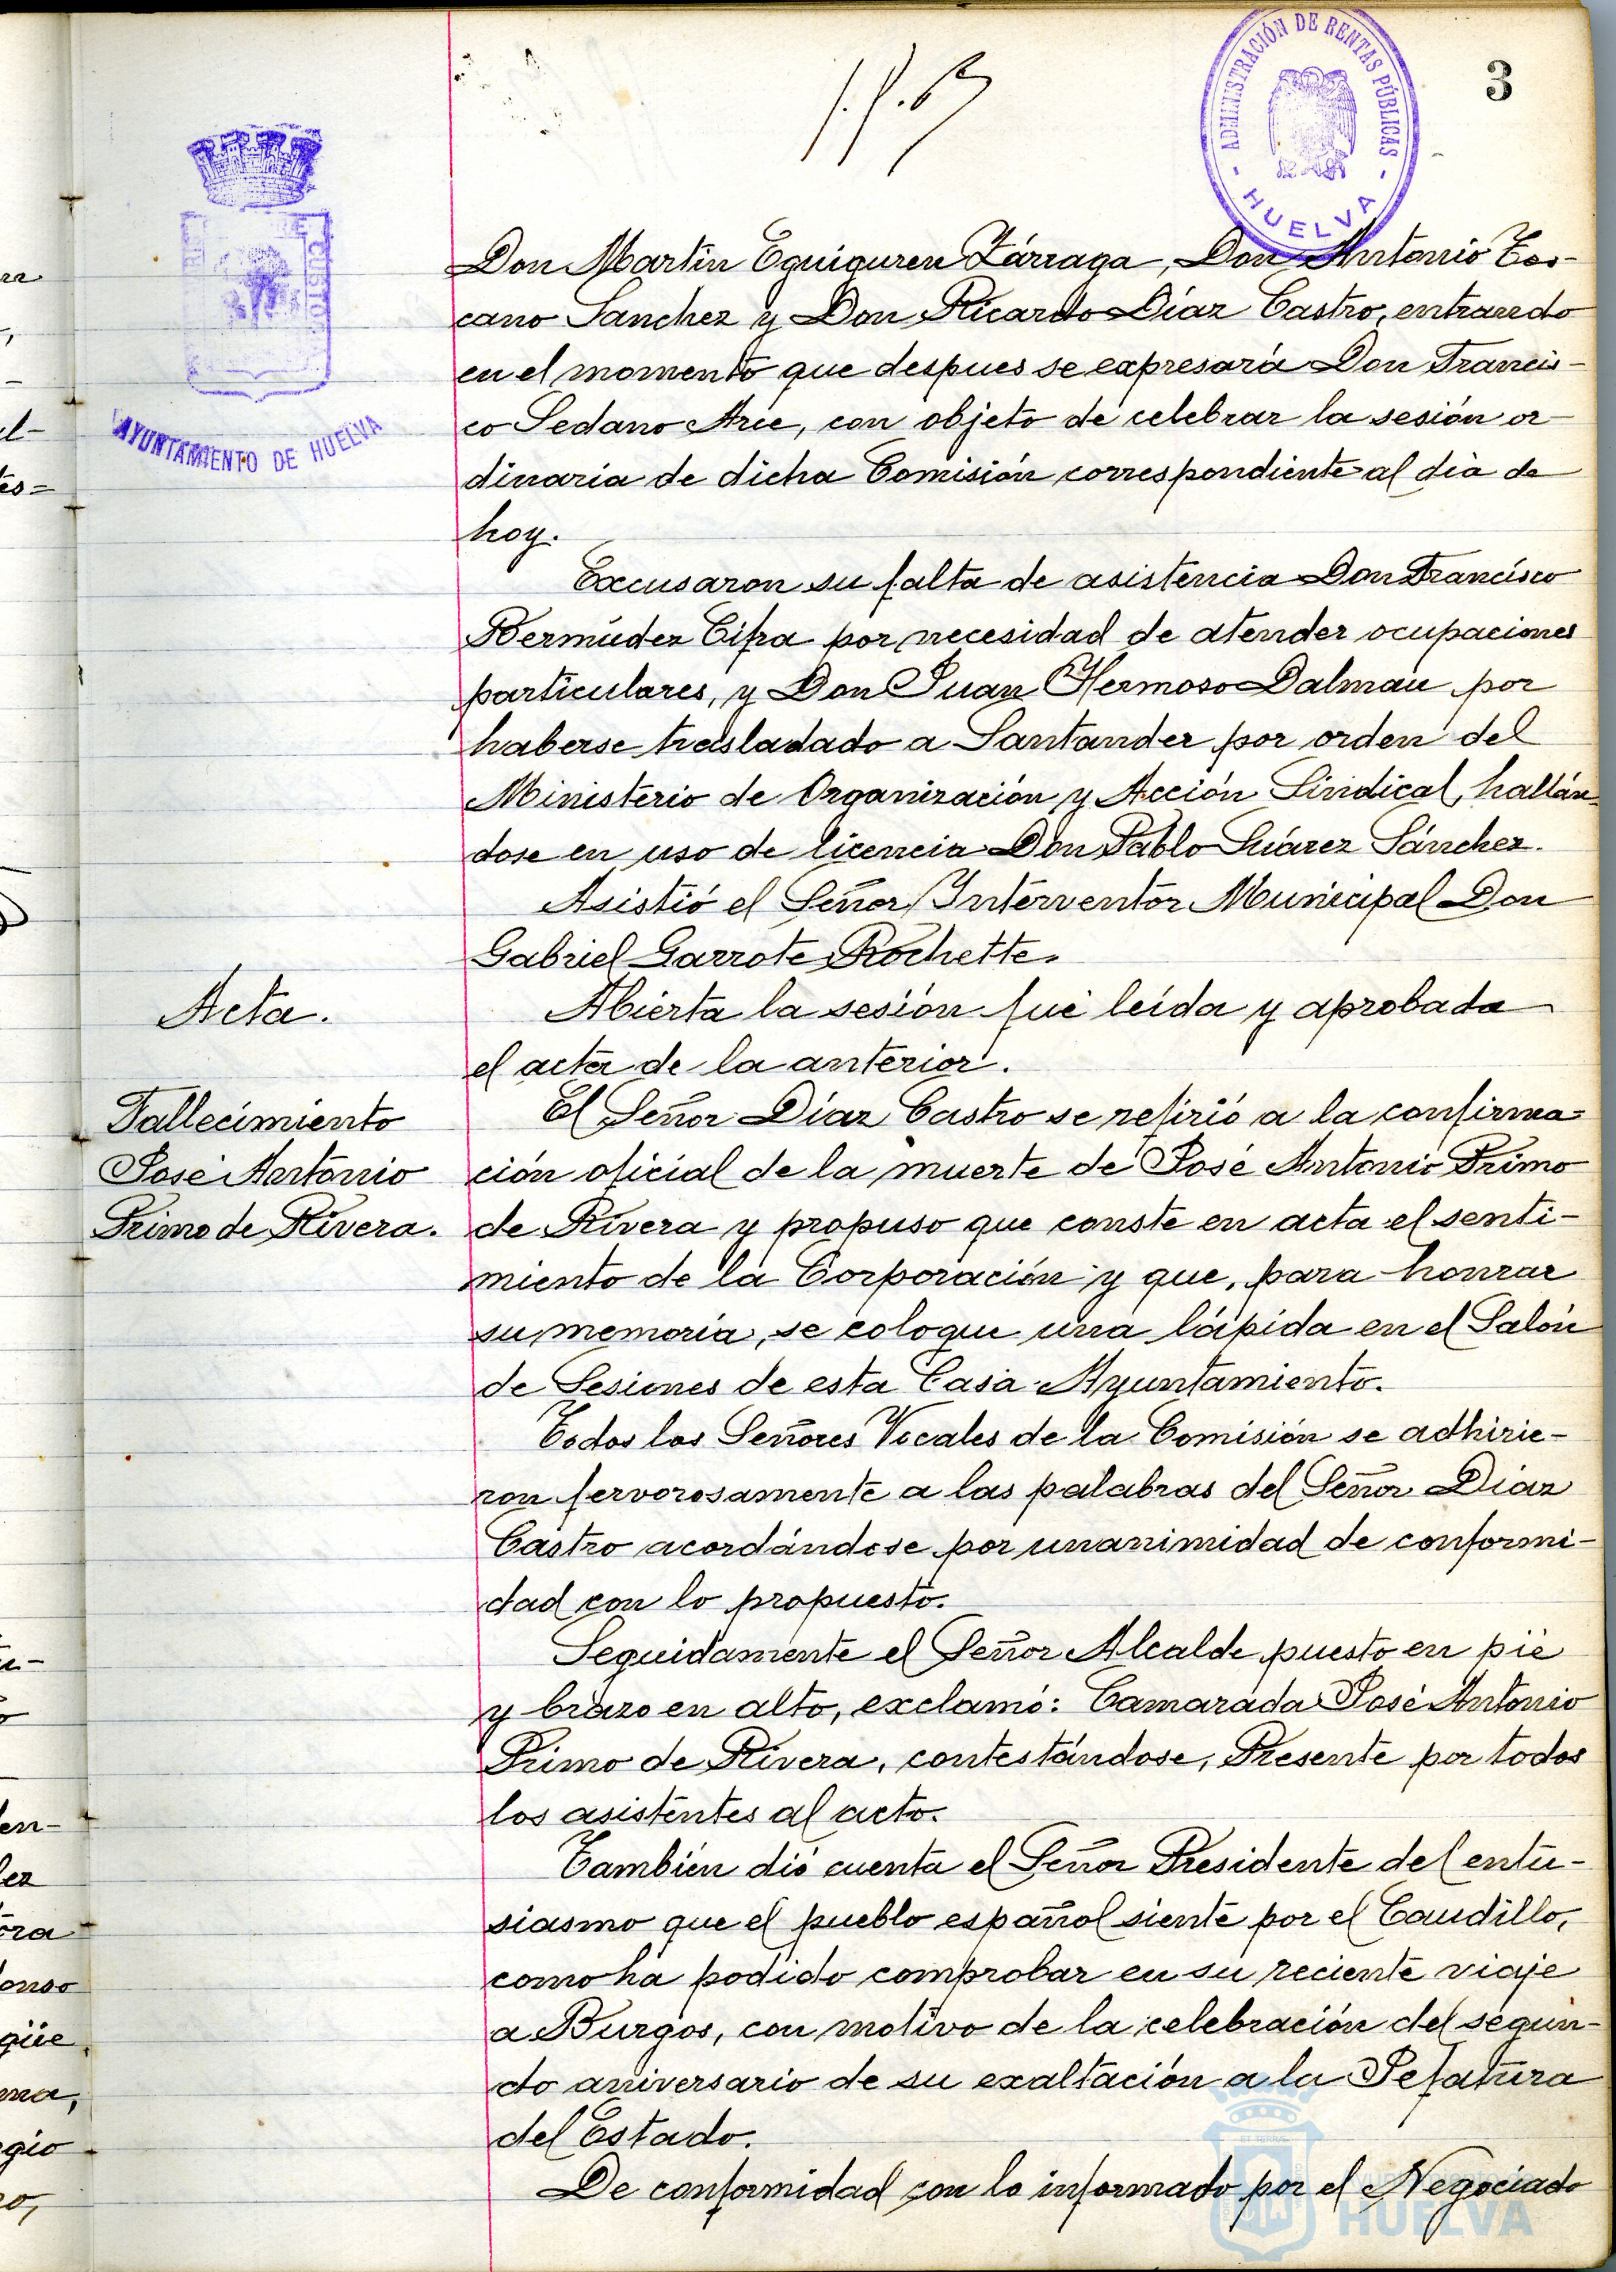 3
ADMINISTRACIÓN DE RENTAS PÚBLICAS
- HUELVA -
AYUNTAMIENTO DE HUELVA
Don Martín Eguiguren Zárraga, Don Antonio Tos-
cano Sanchez y Don Ricardo Díaz Castro, entrando
en el momento que despues se expresará Don Francis-
co Sedano Arce, con objeto de celebrar la sesión or-
dinaria de dicha Comisión correspondiente al día de
hoy.
Excusaron su falta de asistencia Don Francisco
Bermúdez Cifra por necesidad de atender ocupaciones
particulares, y Don Juan Hermoso Dalmau por
haberse trasladado a Santander por orden del
Ministerio de Organización y Acción Sindical, hallán-
dose en uso de licencia Don Pablo Suárez Sánchez.
Asistió el Señor Interventor Municipal Don
Gabriel Garrote Rochette.
Acta.
Abierta la sesión fué leída y aprobada
el acta de la anterior.
Fallecimiento
José Antonio
Primo de Rivera.
El Señor Díaz Castro se refirió a la confirma-
ción oficial de la muerte de José Antonio Primo
de Rivera y propuso que conste en acta el senti-
miento de la Corporación y que, para honrar
su memoria, se coloque una lápida en el Salón
de Sesiones de esta Casa Ayuntamiento.
Todos los Señores Vocales de la Comisión se adhirie-
ron fervorosamente a las palabras del Señor Díaz
Castro acordándose por unanimidad de conformi-
dad con lo propuesto.
Seguidamente el Señor Alcalde puesto en pié
y brazo en alto, exclamó: Camarada José Antonio
Primo de Rivera, contestándose, Presente por todos
los asistentes al acto.
También dió cuenta el Señor Presidente del entu-
siasmo que el pueblo español siente por el Caudillo,
como há podido comprobar en su reciente viaje
a Burgos, con motivo de la celebración del segun-
do aniversario de su exaltación a la Jefatura
del Estado.
De conformidad con lo informado por el Negociado
HUELVA